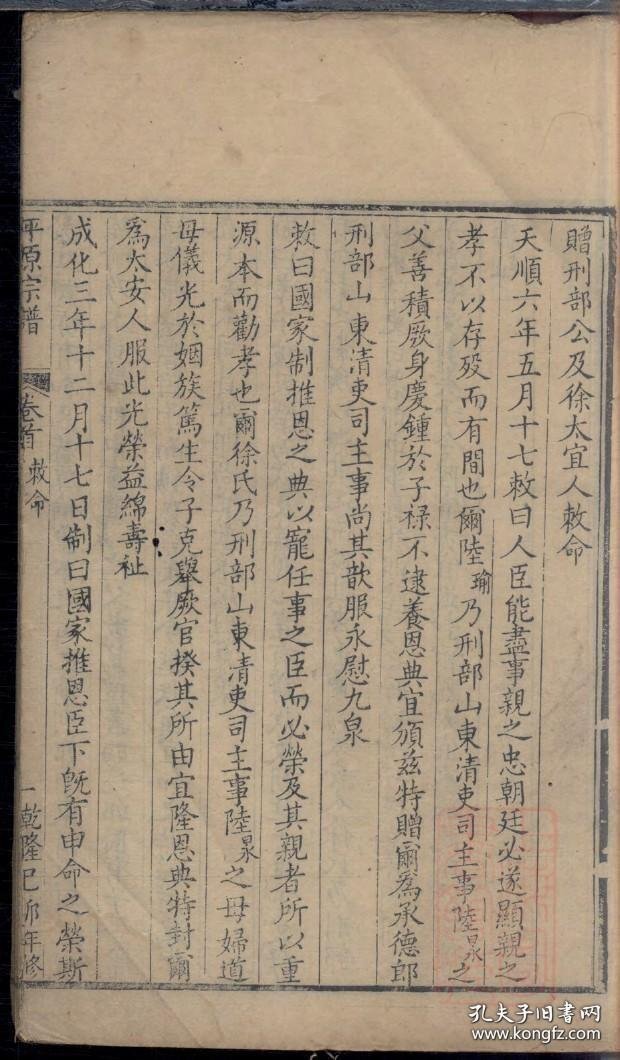 贈刑部公及徐太宜人敕命
天順六年五月十七敕曰人臣能盡事親之忠朝廷必遂顯親之
孝不以存歿而有間也爾陸瑜乃刑部山東清吏司主事陸㫤之
父善積厥身慶鍾於子祿不逮養恩典宜頒茲特贈爾爲承德郎
刑部山東清吏司主事尚其歆服永慰九泉
敕曰國家制推恩之典以寵任事之臣而必榮及其親者所以重
源本而勸孝也爾徐氏乃刑部山東清吏司主事陸㫤之母婦道
母儀光於姻族篤生令子克舉厥官揆其所由宜隆恩典特封爾
爲太安人服此光榮益綿壽祉
成化三年十二月十七日制曰國家推恩臣下旣有申命之榮斯
平原宗譜 卷首 敕命 一 乾隆己卯年修
孔夫子旧书网
www.kongfz.com